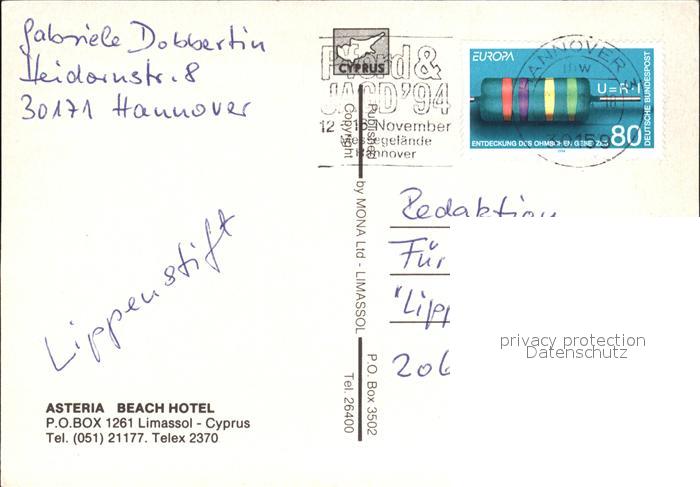 Gabriele Dobbertin
Heidornstr. 8
30171 Hannover
CYPRUS
Pferd &
JAGD '94
12 16 November
Messegelände
Hannover
EUROPA
HANNOVER
U=R·I
80
DEUTSCHE BUNDESPOST
ENTDECKUNG DES OHMSCHEN GESETZES
1994
Published
Copyright
by MONA Ltd - LIMASSOL
P.O. Box 3502
Tel. 26400
Redaktion
Für
"Lipp
206
Lippenstift
privacy protection
Datenschutz
ASTERIA BEACH HOTEL
P.O.BOX 1261 Limassol - Cyprus
Tel. (051) 21177. Telex 2370